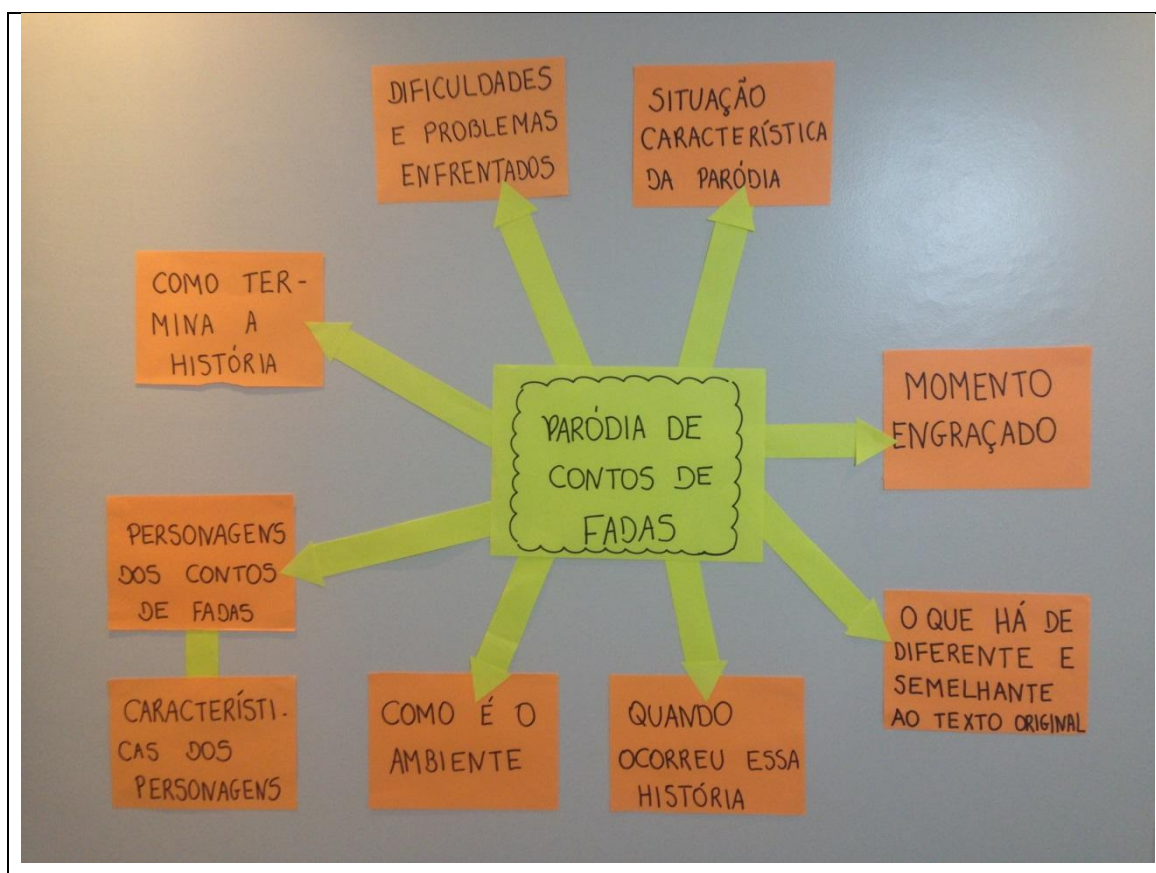 DIFICULDADES
E PROBLEMAS
ENFRENTADOS
SITUAÇÃO
CARACTERÍSTICA
DA PARÓDIA
COMO TER-
MINA A
HISTÓRIA
MOMENTO
ENGRAÇADO
PARÓDIA DE
CONTOS DE
FADAS
PERSONAGENS
DOS CONTOS
DE FADAS
O QUE HÁ DE
DIFERENTE E
SEMELHANTE
AO TEXTO ORIGINAL
CARACTERÍSTI-
CAS DOS
PERSONAGENS
COMO É O
AMBIENTE
QUANDO
OCORREU ESSA
HISTÓRIA